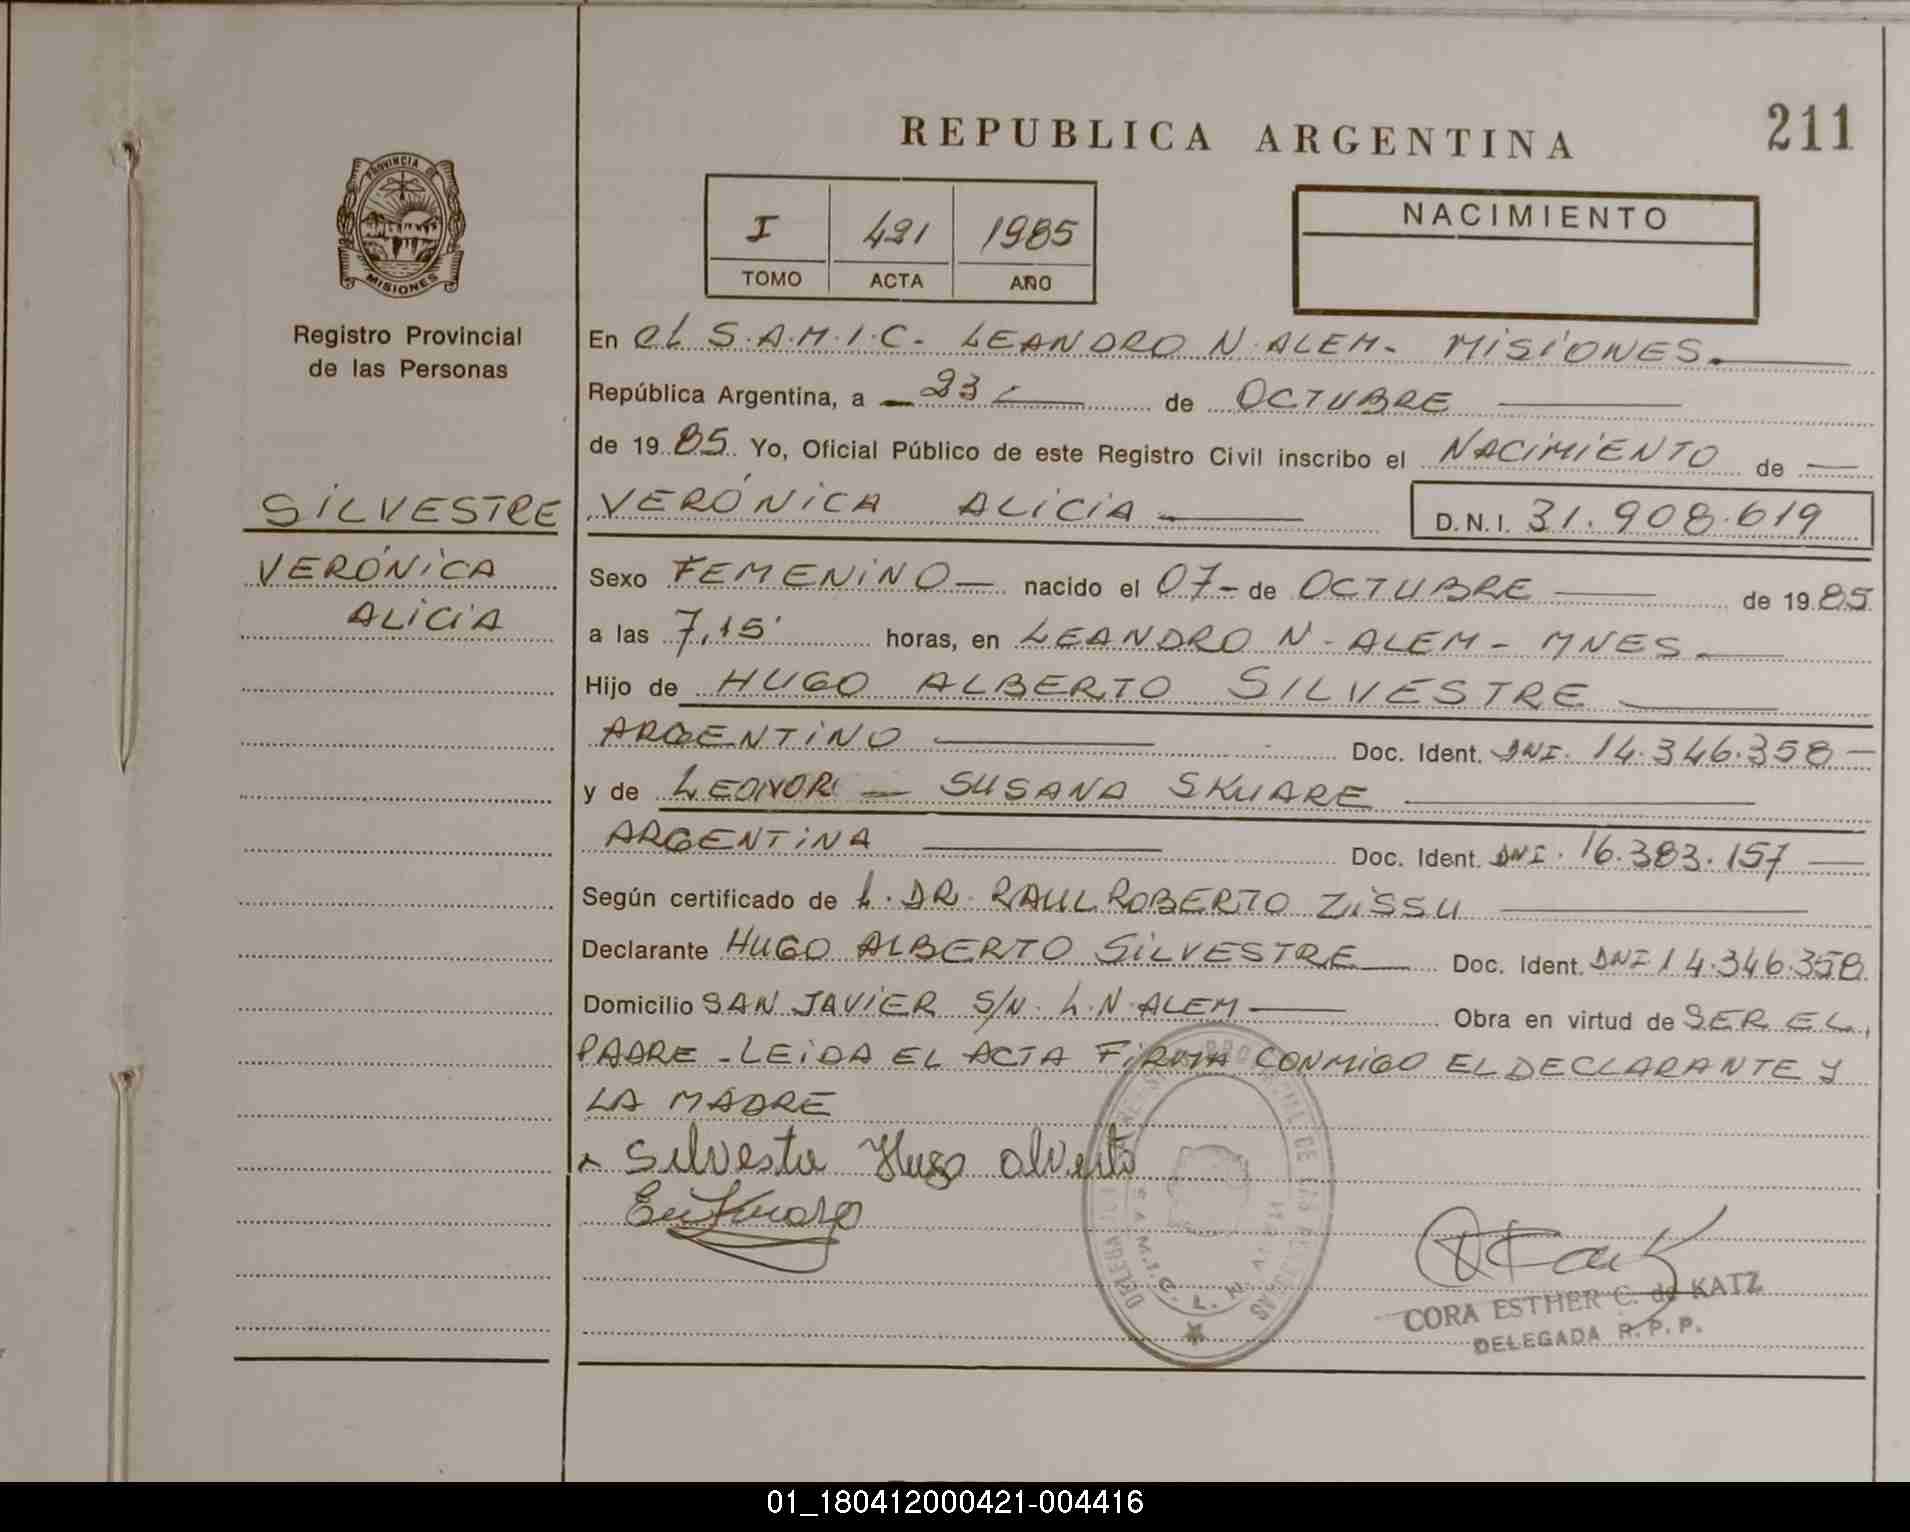 REPUBLICA ARGENTINA
211
PROVINCIA DE
MISIONES
Registro Provincial
de las Personas
I 421 1985
TOMO ACTA AÑO
NACIMIENTO
En el S.A.M.I.C. LEANDRO N. ALEM - MISIONES.
República Argentina, a 23 de OCTUBRE
de 1985 Yo, Oficial Público de este Registro Civil inscribo el NACIMIENTO de
SILVESTRE
VERÓNICA ALICIA
D.N.I. 31.908.619
VERÓNICA
ALICIA
Sexo FEMENINO nacido el 07 - de OCTUBRE de 1985
a las 7,15' horas, en LEANDRO N. ALEM - MNES
Hijo de HUGO ALBERTO SILVESTRE
ARGENTINO Doc. Ident. DNI. 14.346.358
y de LEONOR SUSANA SKUARE
ARGENTINA Doc. Ident. DNI. 16.383.157
Según certificado de L. DR. RAUL ROBERTO ZISSU
Declarante HUGO ALBERTO SILVESTRE Doc. Ident. DNI 14.346.358
Domicilio SAN JAVIER S/N. L.N. ALEM Obra en virtud de SER EL
PADRE - LEIDA EL ACTA FIRMA CONMIGO EL DECLARANTE Y
LA MADRE
Silvestre Hugo alverto
CORA ESTHER C. de KATZ
DELEGADA R.P.P.
01_180412000421-004416